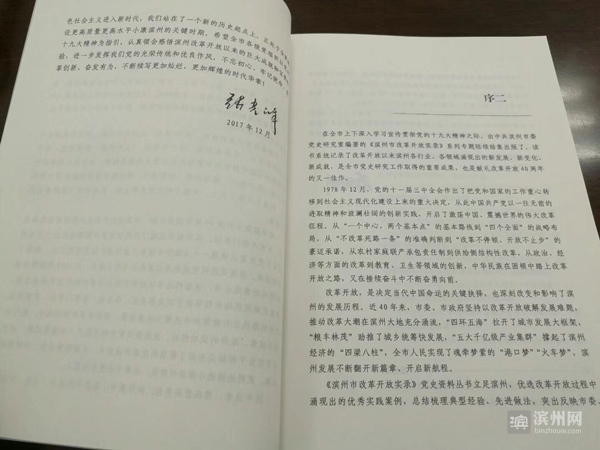 色社会主义进入新时代，我们站在了一个新的历史起点上，正处于全面建
设更高质量更高水平小康滨州的关键时期。希望全市各级党组织以党的
十九大精神为指引，认真领会感悟滨州改革开放以来的巨大成就和宝贵经
验，进一步发挥我们党的光荣传统和优良作风，不忘初心，牢记使命，
革创新，奋发有为，不断续写更加灿烂、更加辉煌的时代华章！
2017年12月
序二
在全市上下深入学习宣传贯彻党的十九大精神之际，由中共滨州市委
党史研究室编著的《滨州市改革开放实录》系列专题陆续结集出版了。该
书系统记录了改革开放以来滨州各行业、各领域涌现出的新发展、新变化、
新成就，是全市党史研究工作取得的重要成果，也是献礼改革开放40周年
的又一佳作。
1978年12月，党的十一届三中全会作出了把党和国家的工作重心转
移到社会主义现代化建设上来的重大决定，从此中国共产党以一往无前的
进取精神和波澜壮阔的创新实践，开启了激荡中国、震撼世界的伟大改革
征程。从“一个中心，两个基本点”的基本路线到“四个全面”的战略布
局，从“不改革死路一条”的准确判断到“改革不停顿、开放不止步”的
豪迈承诺，从农村家庭联产承包责任制到供给侧结构性改革，从政治、经
济等方面的改革到教育、卫生等领域的创新，中华民族在困顿中踏上改革
开放之路，又在接续奋斗中不断奋勇向前。
改革开放，是决定当代中国命运的关键抉择，也深刻改变和影响了滨
州的发展历程。近40年来，市委、市政府坚持以改革开放破解发展难题，
推动改革大潮在滨州大地充分涌流，“四环五海”拉开了城市发展大框架，
“粮丰林茂”助推了城乡统筹快发展，“五大千亿级产业集群”撑起了滨州
经济的“四梁八柱”，全市人民实现了魂牵梦萦的“港口梦”“火车梦”，滨
州发展不断翻开新篇章、开启新航程。
《滨州市改革开放实录》党史资料丛书立足滨州，优选改革开放过程中
涌现出的优秀实践案例，总结梳理典型经验、先进做法，突出反映市委、
滨州网
www.binzhouw.com